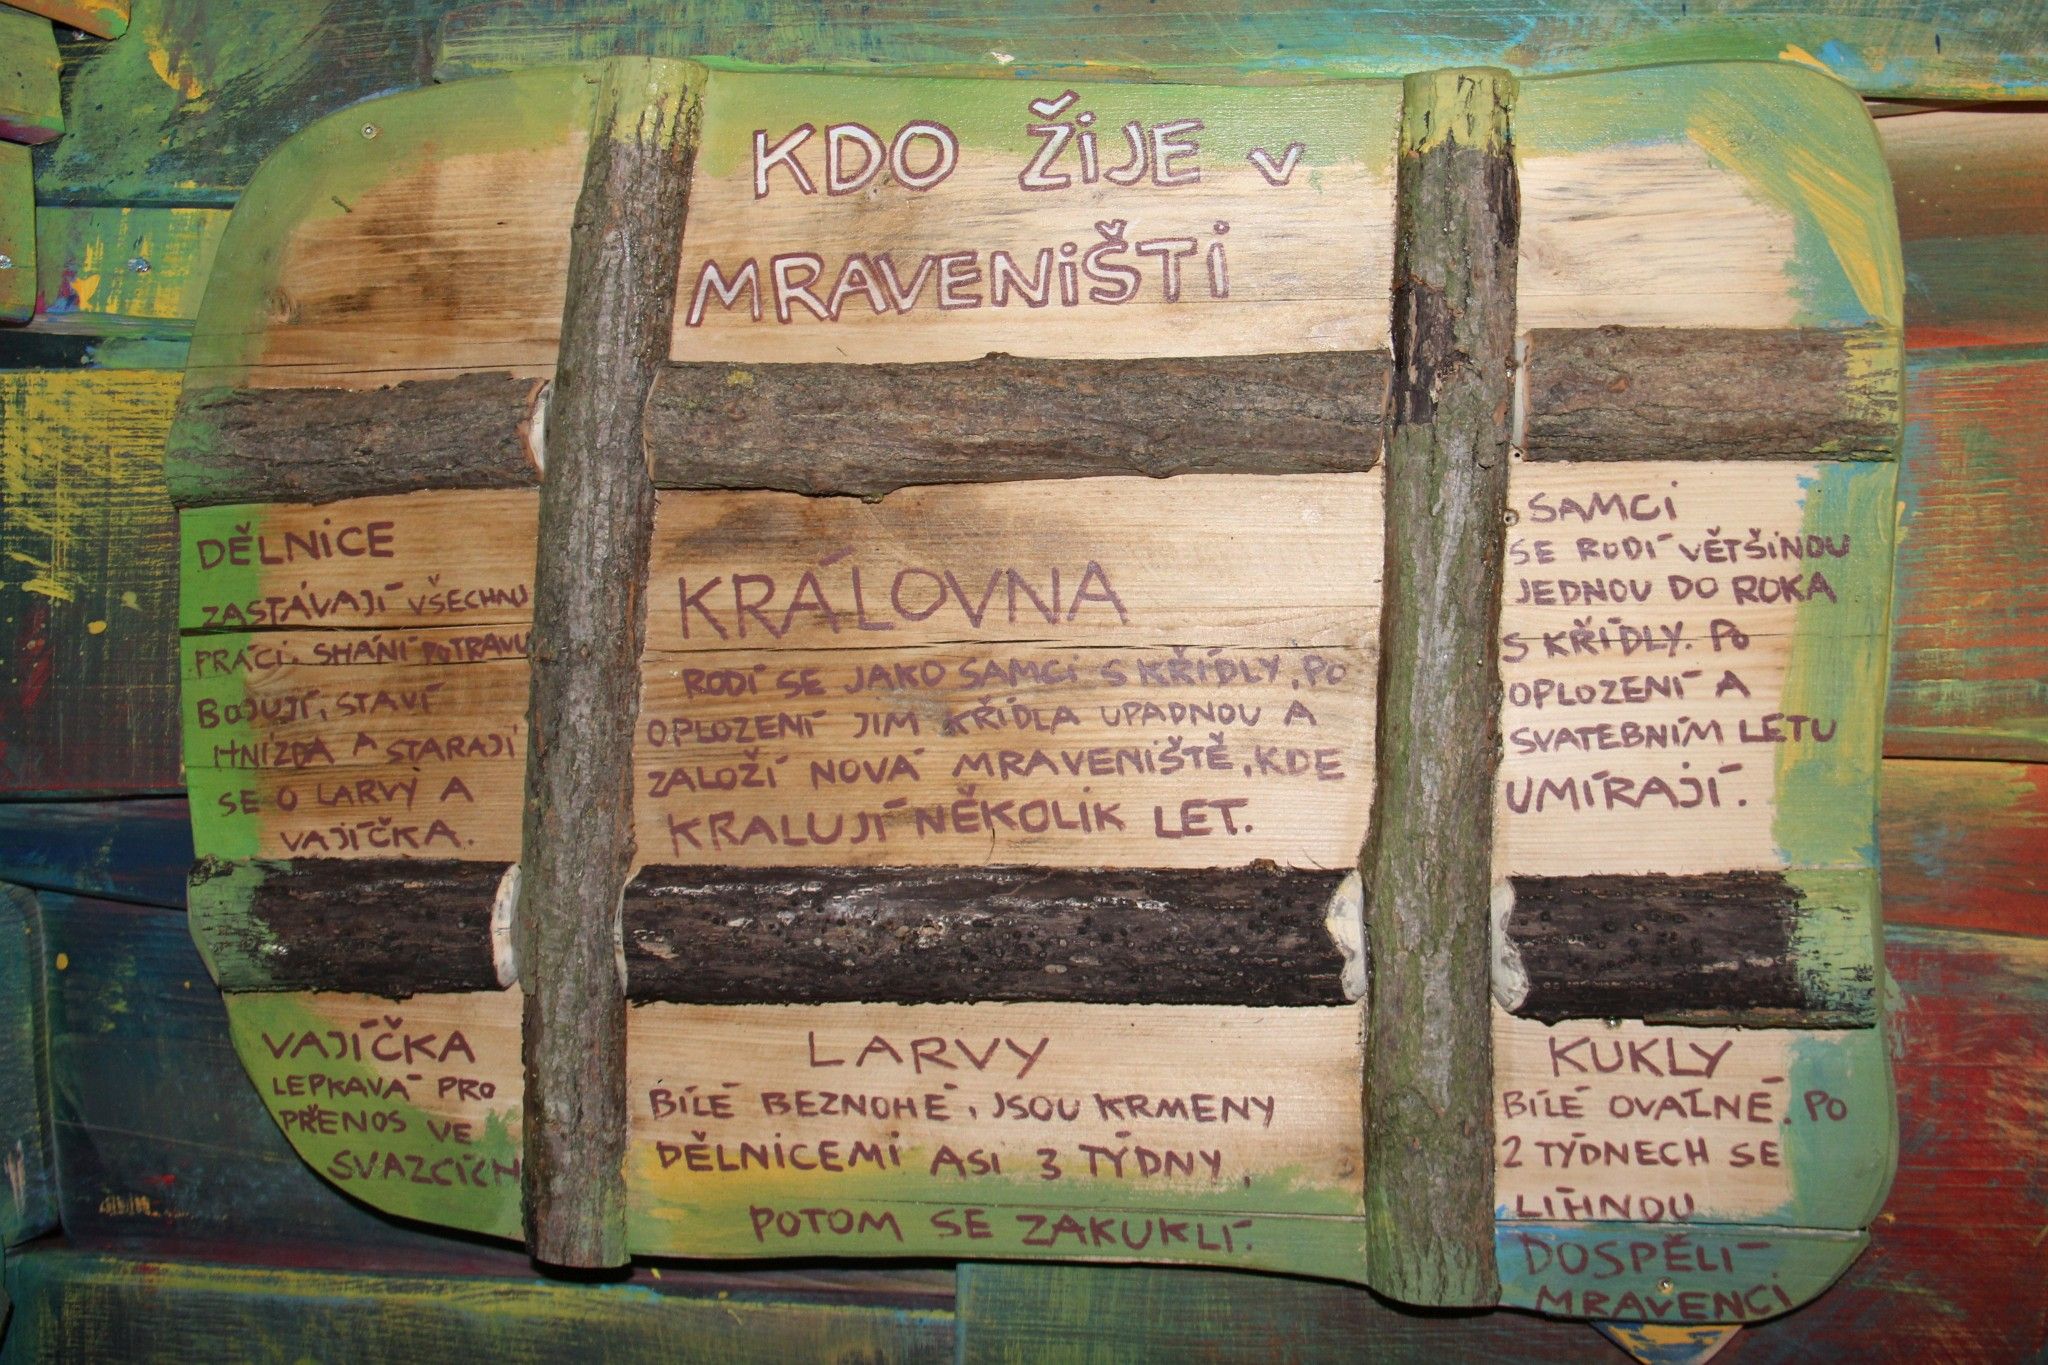 KDO ŽIJE V
MRAVENIŠTI
DĚLNICE
ZASTÁVAJÍ VŠECHNU
PRÁCI. SHÁNÍ POTRAVU
BOJUJÍ, STAVÍ
HNÍZDA A STARAJÍ
SE O LARVY A
VAJÍČKA.
KRÁLOVNA
RODÍ SE JAKO SAMCI S KŘÍDLY. PO
OPLOZENÍ JIM KŘÍDLA UPADNOU A
ZALOŽÍ NOVÁ MRAVENIŠTĚ, KDE
KRALUJÍ NĚKOLIK LET.
SAMCI
SE RODÍ VĚTŠINOU
JEDNOU DO ROKA
S KŘÍDLY. PO
OPLOZENÍ A
SVATEBNÍM LETU
UMÍRAJÍ.
VAJÍČKA
LEPKAVÁ PRO
PŘENOS VE
SVAZCÍCH
LARVY
BÍLÉ BEZNOHÉ, JSOU KRMENY
DĚLNICEMI ASI 3 TÝDNY,
POTOM SE ZAKUKLÍ.
KUKLY
BÍLÉ OVÁLNÉ. PO
2 TÝDNECH SE
LÍHNOU
DOSPĚLÍ
MRAVENCI